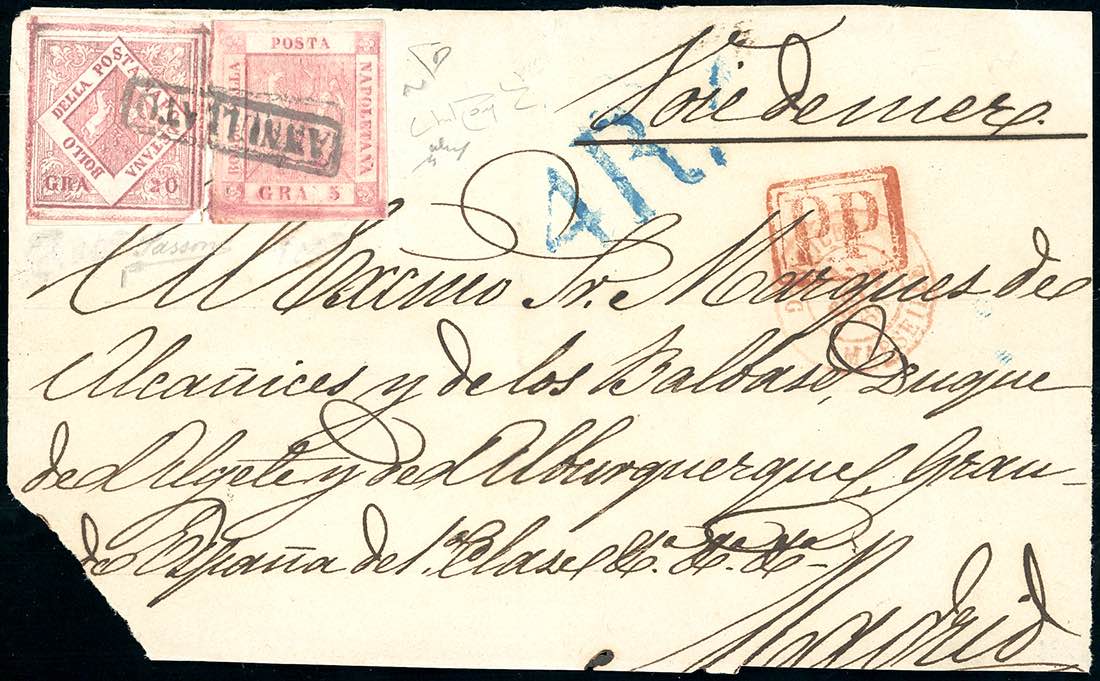 BOLLO DELLA POSTA NAPOLETANA
GRA 20
POSTA NAPOLETANA
BOLLO DELLA
GRA 5
ANNULLATO
Voie de mer.
4R.
P.P.
MARSEILLE
Sassone
Al Excmo Sr. Marques de
Alcañices y de los Balbases, Duque
de Algete y de Alburquerque, Gran-
de España de 1ª. Clase &ª. &ª. &ª.
Madrid